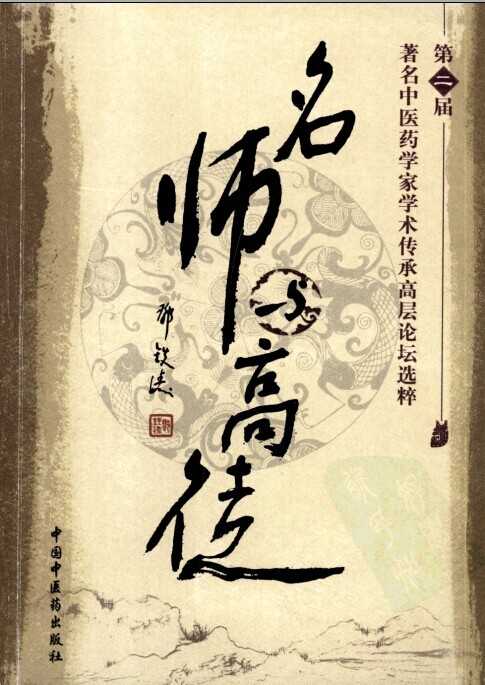 第二届
著名中医药学家学术传承高层论坛选粹
名师与高徒
邓铁涛
中国中医药出版社